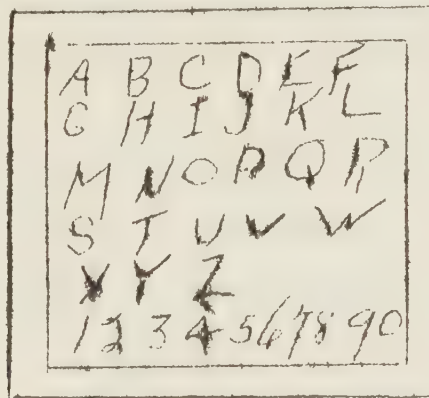 A B C D E F
G H I J K L
M N O P Q R
S T U V W
X Y Z
1 2 3 4 5 6 7 8 9 0